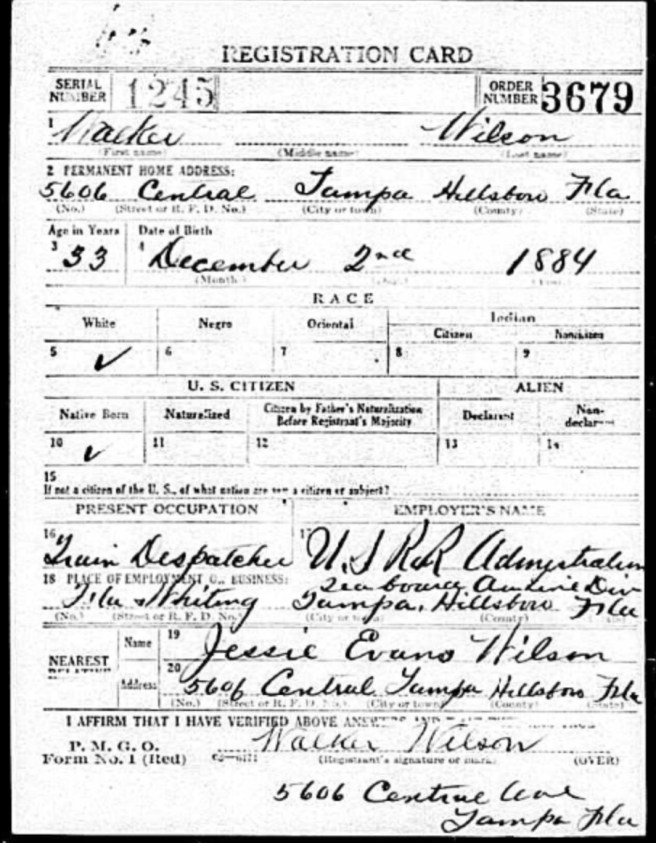 REGISTRATION CARD
SERIAL NUMBER 1245 ORDER NUMBER 3679
1 Walker Wilson
(First name) (Middle name) (Last name)
2 PERMANENT HOME ADDRESS:
5606 Central Tampa Hillsboro Fla
(No.) (Street or R. F. D. No.) (City or town) (County) (State)
Age in Years Date of Birth
3 33 4 December 2nd 1884
(Month.) (Day.) (Year.)
RACE
White Negro Oriental Indian
Citizen Noncitizen
5 ✓ 6 7 8 9
U. S. CITIZEN ALIEN
Native Born Naturalized Citizen by Father's Naturalization Before Registrant's Majority Declarant Non-declarant
10 ✓ 11 12 13 14
15
If not a citizen of the U. S., of what nation are you a citizen or subject?
PRESENT OCCUPATION EMPLOYER'S NAME
16 Train Despatcher 17 U. S R.R.
18 PLACE OF EMPLOYMENT OR BUSINESS: Seaboard Div
Fla & Whiting Tampa, Hillsboro Fla
(No.) (Street or R. F. D. No.) (City or town) (County)
NEAREST Name 19 Jessie Evans Wilson
Address 20 5606 Central Tampa Hillsboro Fla
(No.) (Street or R. F. D. No.) (City or town) (County) (State)
I AFFIRM THAT I HAVE VERIFIED ABOVE ANSWERS AND
P. M. G. O.
Form No. 1 (Red) Walker Wilson
(Registrant's signature or mark) (OVER)
5606 Central Ave
Tampa Fla